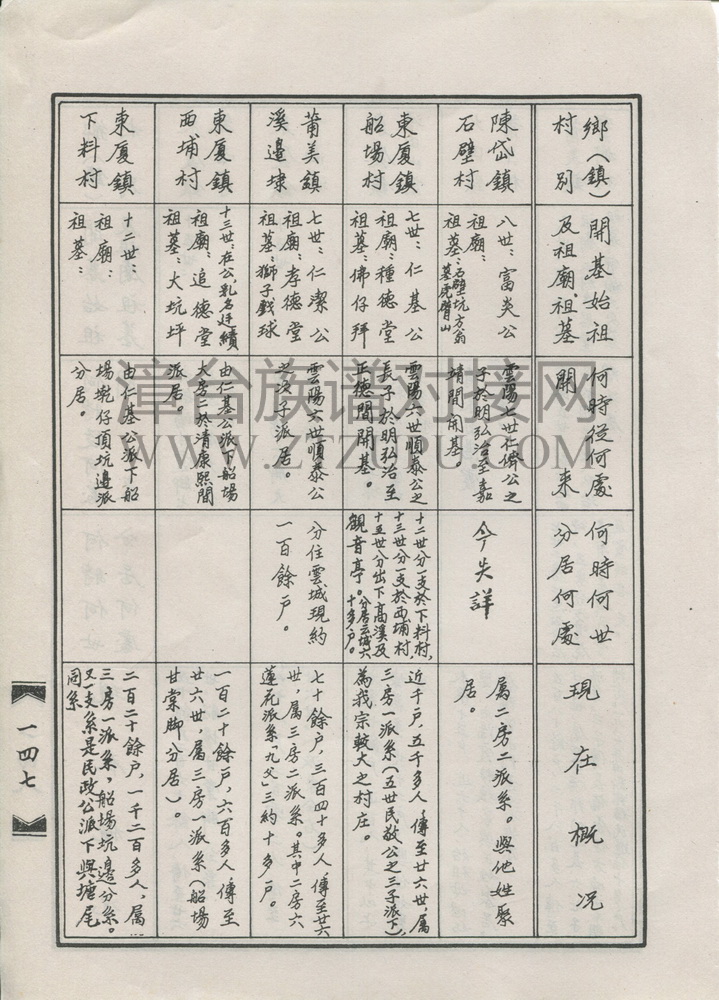 鄉（鎮）
村別
開基始祖
及祖廟祖墓
何時從何處
開來
何時何世
分居何處
現在概況
陳岱鎮
石壁村
八世：富炎公
祖廟：
祖墓：石壁坑方翁
墓虎臂山
雲陽七世仁濟公之
子於明弘治至嘉
靖間開基。
今失詳
屬二房二派系。與他姓聚
居。
東厦鎮
船場村
七世：仁基公
祖廟：種德堂
祖墓：佛仔拜
雲陽六世順泰公之
長子於明弘治至
正德間開基。
十二世分一支於下料村，
十三世分一支於西埔村，
十五世分出下高溪及
觀音亭。分居云城六
十多户。
近千户，五千多人，傳至廿六世，屬
三房一派系（五世民敬公之三子派下），
為我宗較大之村庄。
莆美鎮
溪邉埭
七世：仁潔公
祖廟：孝德堂
祖墓：獅子戯球
雲陽六世順泰公
之次子派居。
分住雲城現約
一百餘户。
七十餘户，三百四十多人，傳至廿六
世，屬三房二派系。其中二房六
蓮花派系「九父」三約十多户。
東厦鎮
西埔村
十三世：在公乳名廷績
祖廟：追德堂
祖墓：大坑坪
由仁基公派下船場
大房二於清康熙間
派居。
一百二十餘户，六百多人，傳至
廿六世，屬三房一派系（船場
甘棠脚分居）。
東厦鎮
下料村
十二世：
祖廟：
祖墓：
由仁基公派下船
場墘仔頂坑邉派
分居。
二百二十餘户，一千二百多人，屬
三房一派系，船場坑邉分系。
又一支系是民政公派下與塘尾
同系
一四七
漳台族谱对接网
WWW.ZTZUPU.COM